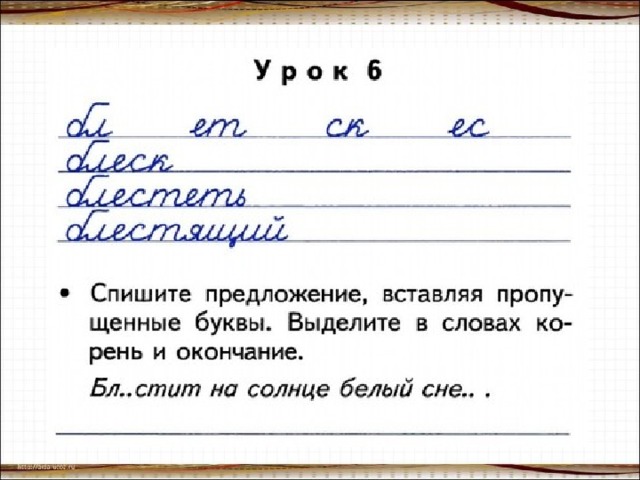 Урок 6
бл ет ск ес
блеск
блестеть
блестящий
• Спишите предложение, вставляя пропу-
щенные буквы. Выделите в словах ко-
рень и окончание.
Бл..стит на солнце белый сне.. .